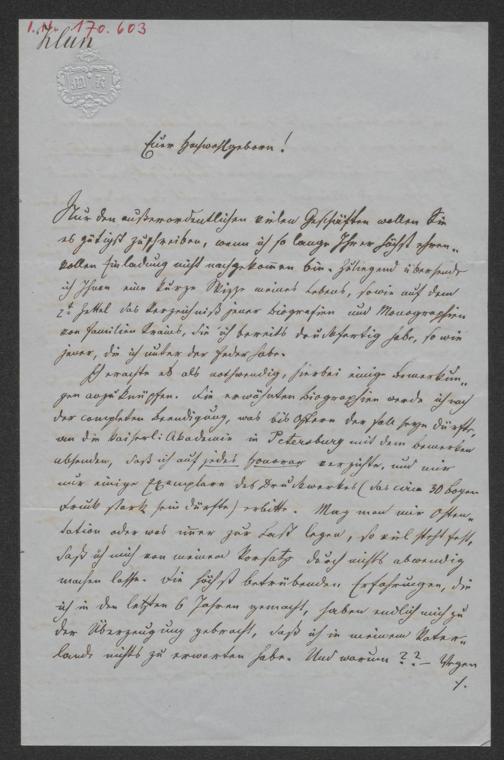 I. N. 170.603
Klun
Euer Hochwohlgeborn!
Nur den außerordentlichen vielen Geschäften wollen Sie
es gütigst zuschreiben, wenn ich so lange Ihrer höchst ehren-
vollen Einladung nicht nachgekommen bin. Zuliegend übersende
ich Ihnen eine kurze Skizze meines Lebens, sowie auf dem
2t Zettel das Verzeichniß jener Biografien und Monografien
von Familien Krains, die ich bereits druckfertig habe, so wie
jener, die ich unter der Feder habe.
Ich erachte es als nothwendig, hierbei einige Bemerkun-
gen anzuknüpfen. Die erwähnten Biographien werde ich nach
der completen Beendigung, was bis Ostern der Fall seyn dürfte,
an die kaiserl: Akademie in Petersburg mit dem Bemerken
absenden, daß ich auf jedes Honorar verzichte, und mir
nur einige Exemplare des Druckwerkes (das circa 30 Bogen
Druck stark sein dürfte) erbitte. Mag man mir Osten-
tation oder was immer zur Last legen, so viel steht fest,
daß ich mich von meinem Vorsatze durch nichts abwendig
machen lasse. Die höchst betrübenden Erfahrungen, die
ich in den letzten 6 Jahren gemacht, haben endlich mich zu
der Überzeugung gebracht, daß ich in meinem Vater-
lande nichts zu erwarten habe. Und warum?? – Wegen
./.